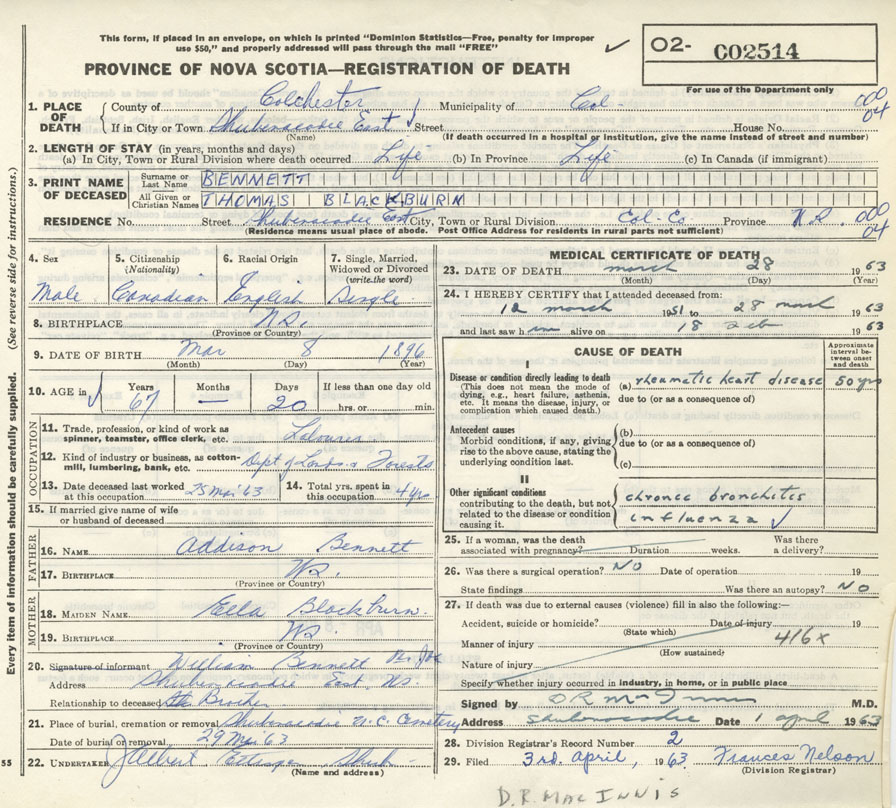 This form, if placed in an envelope, on which is printed "Dominion Statistics—Free, penalty for improper
use $50," and properly addressed will pass through the mail "FREE"
✓
O2- CO2514
For use of the Department only
PROVINCE OF NOVA SCOTIA—REGISTRATION OF DEATH
1. PLACE OF DEATH
County of Colchester Municipality of Col - 000
If in City or Town Shubenacadie East Street House No. 04
(Name) (If death occurred in a hospital or institution, give the name instead of street and number)
2. LENGTH OF STAY (in years, months and days)
(a) In City, Town or Rural Division where death occurred Life (b) In Province Life (c) In Canada (if immigrant)
3. PRINT NAME OF DECEASED
Surname or Last Name BENNETT
All Given or Christian Names THOMAS BLACKBURN
RESIDENCE No. Street Shubenacadie East City, Town or Rural Division Col. Co. Province N.S. 000
(Residence means usual place of abode. Post Office Address for residents in rural parts not sufficient) 04
4. Sex Male
5. Citizenship (Nationality) Canadian
6. Racial Origin English
7. Single, Married, Widowed or Divorced (write the word) Single
8. BIRTHPLACE N.S.
(Province or Country)
9. DATE OF BIRTH Mar 8 1896
(Month) (Day) (Year)
10. AGE in ✓ Years 67 Months Days 20 If less than one day old hrs. or min.
OCCUPATION
11. Trade, profession, or kind of work as spinner, teamster, office clerk, etc. Labourer
12. Kind of industry or business, as cotton-mill, lumbering, bank, etc. Dept of Lands & Forests
13. Date deceased last worked at this occupation 25 Mar 63
14. Total yrs. spent in this occupation 4 yrs
15. If married give name of wife or husband of deceased
FATHER
16. NAME Addison Bennett
17. BIRTHPLACE N.S.
(Province or Country)
MOTHER
18. MAIDEN NAME Ella Blackburn.
19. BIRTHPLACE N.S.
(Province or Country)
20. Signature of informant William Bennett
Address Shubenacadie East, N.S.
Relationship to deceased Brother
21. Place of burial, cremation or removal Shubenacadie U.C. Cemetery
Date of burial or removal 29 Mar 63
22. UNDERTAKER Shub -
(Name and address)
MEDICAL CERTIFICATE OF DEATH
23. DATE OF DEATH march 28 1963
(Month) (Day) (Year)
24. I HEREBY CERTIFY that I attended deceased from:
12 march 1951 to 28 march 1963
and last saw him alive on 18 Feb 1963
CAUSE OF DEATH
Approximate interval between onset and death
I
Disease or condition directly leading to death
(This does not mean the mode of dying, e.g., heart failure, asthenia, etc. It means the disease, injury, or complication which caused death.)
(a) rheumatic heart disease 50 yrs
due to (or as a consequence of)
Antecedent causes
Morbid conditions, if any, giving rise to the above cause, stating the underlying condition last.
(b)
due to (or as a consequence of)
(c)
II
Other significant conditions contributing to the death, but not related to the disease or condition causing it.
chronic bronchitis
influenza ✓
25. If a woman, was the death associated with pregnancy? Duration weeks. Was there a delivery?
26. Was there a surgical operation? NO Date of operation 19
State findings Was there an autopsy? NO
27. If death was due to external causes (violence) fill in also the following:—
Accident, suicide or homicide? Date of injury 19
(State which)
Manner of injury 416X
(How sustained)
Nature of injury
Specify whether injury occurred in industry, in home, or in public place
Signed by D R McInnis M.D.
Address Shubenacadie Date 1 april 1963
28. Division Registrar's Record Number 2
29. Filed 3rd. April, 1963 Frances Nelson
(Division Registrar)
D.R. MACINNIS
Every item of information should be carefully supplied. (See reverse side for instructions.)
55